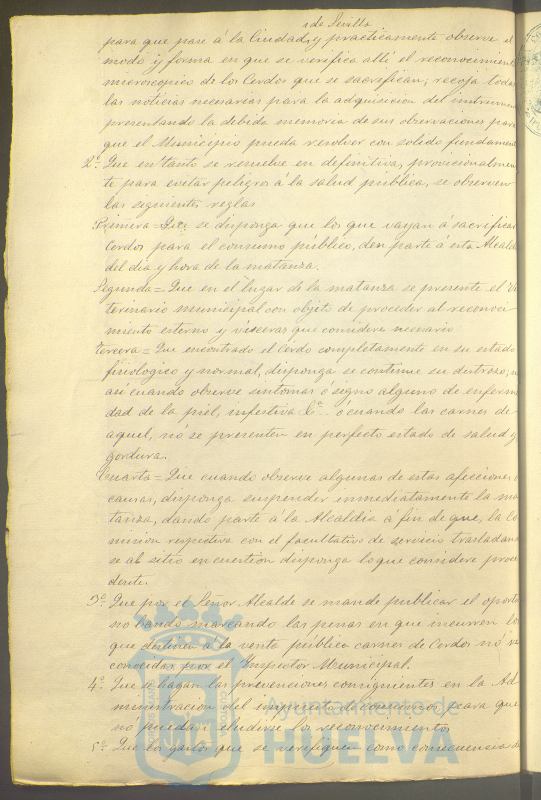 de Sevilla
para que pase á la Ciudad, y practicamente observe el
modo y forma en que se verifica allí el reconocimient
microscopico de los Cerdos que se sacrifican; recoja todas
las noticias necesarias para la adquisicion del instrumen
presentando la debida memoria de sus observaciones para
que el Municipio pueda resolver con solido fundamen
2º. Que en tanto se resuelve en definitiva, provisionalmen
te para evitar peligros á la salud publica, se observen
las siguientes reglas
Primera = Que se disponga que los que vayan á sacrificar
Cerdos para el consumo publico, den parte á esta Alcald
del dia y hora de la matanza.
Segunda = Que en el lugar de la matanza se presente el Ve
terinario municipal con objeto de proceder al reconoci
miento esterno y visceras que considere necesario
Tercera = Que encontrado el Cerdo completamente en su estado
fisiologico y normal, disponga se continue su destrozo; n
así cuando observe sintomas ó signo alguno de enferme
dad de la piel, infectiva &ª. ó cuando las carnes de
aquel, nó se presenten en perfecto estado de salud y
gordura.
Cuarta = Que cuando observe algunas de estas afecciones ó
causas, disponga suspender inmediatamente la ma
tanza, dando parte á la Alcaldia á fin de que, la Co
mision respectiva con el facultativo de servicio trasladand
se al sitio en cuestion disponga lo que considere proce
dente.
3º. Que por el Señor Alcalde se mande publicar el oportu
no bando marcando las penas en que incurren los
que destinen á la venta publica carnes de Cerdos nó re
conocidas por el Inspector Municipal.
4º. Que se hagan las prevenciones consiguientes en la Ad
ministracion del impuesto de consumos, para que
nó pueda eludirse los reconocimientos
5º. Que los gastos que se verifiquen como consecuencia de
Ayuntamiento de
HUELVA